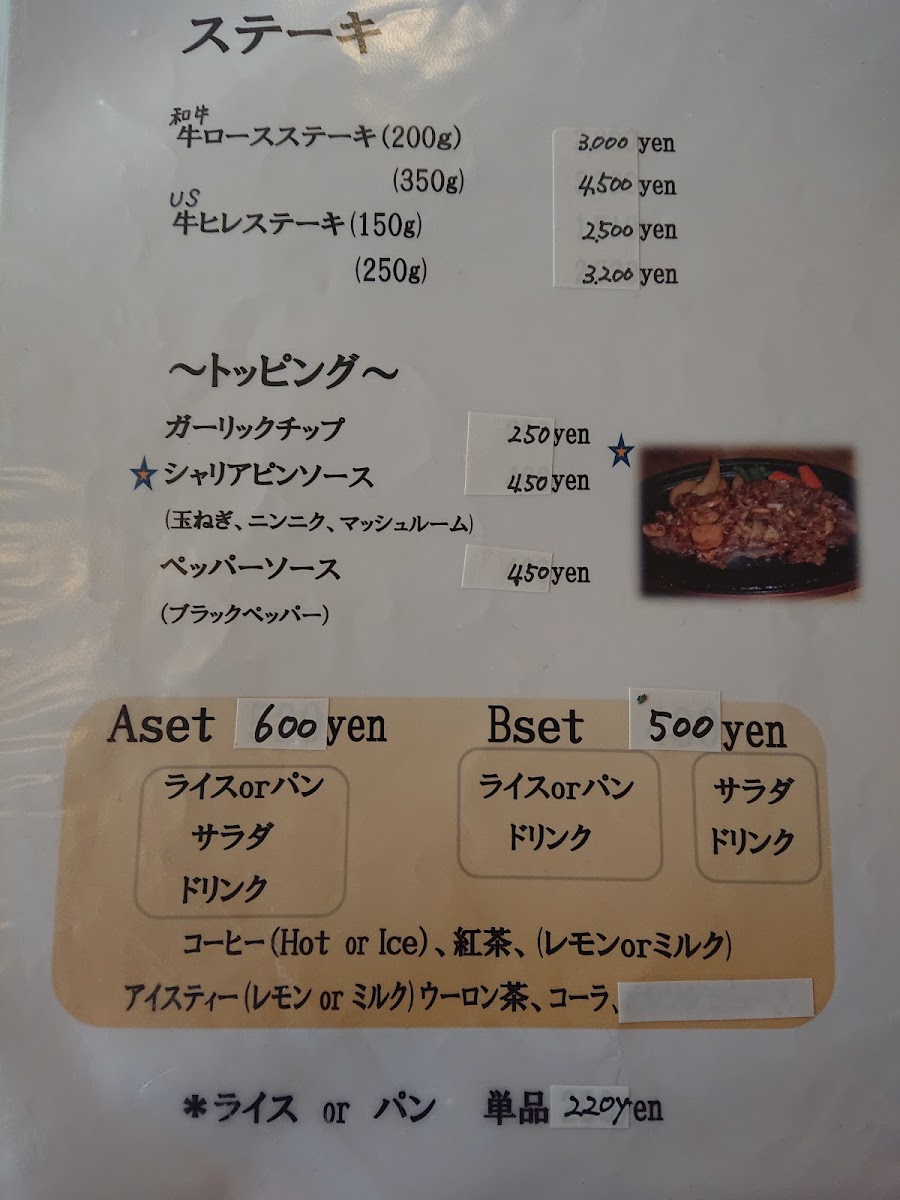 ステーキ
和牛
牛ロースステーキ(200g) 3,000yen
(350g) 4,500yen
US
牛ヒレステーキ(150g) 2,500yen
(250g) 3,200yen
～トッピング～
ガーリックチップ 250yen
シャリアピンソース 450yen
(玉ねぎ、ニンニク、マッシュルーム)
ペッパーソース 450yen
(ブラックペッパー)
Aset 600yen Bset 500yen
ライスorパン ライスorパン サラダ
サラダ ドリンク ドリンク
ドリンク
コーヒー(Hot or Ice)、紅茶、(レモンorミルク)
アイスティー(レモン or ミルク)ウーロン茶、コーラ、
*ライス or パン 単品 220yen